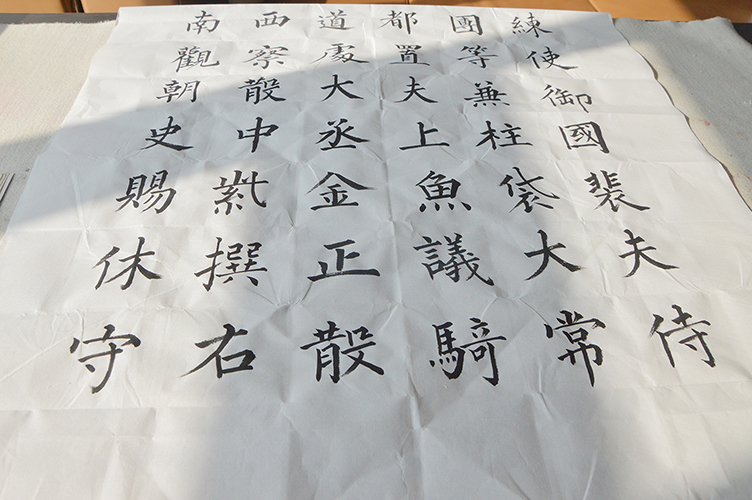 南西道都團練
觀察處置等使
朝散大夫兼御
史中丞上柱國
賜紫金魚袋裴
休撰正議大夫
守右散騎常侍